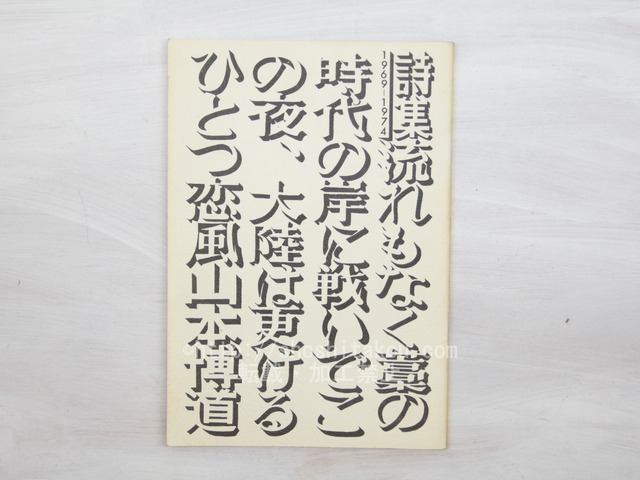 詩集流れもなく藁の
1969—1974
時代の岸に戦いどこ
の夜、大陸は更ける
ひとつ恋風山本博道
転載・加工禁止